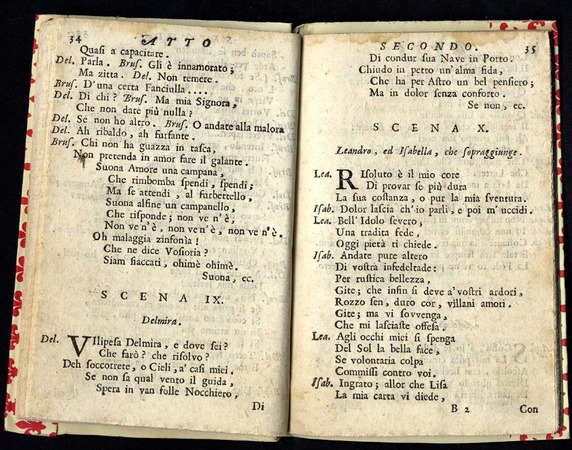 34 ATTO
Quasi a capacitare.
Del. Parla. Brus. Gli è innamorato;
Ma zitta. Del. Non temere.
Brus. D'una certa Fanciulla ....
Del. Di chi? Brus. Ma mia Signora,
Che non date più nulla?
Del. Se non ho altro. Brus. O andate alla malora
Del. Ah ribaldo, ah furfante.
Brus. Chi non ha guazza in tasca,
Non pretenda in amor fare il galante.
Suona Amore una campana,
Che rimbomba spendi, spendi;
Ma se attendi, al furbertello,
Suona alfine un campanello,
Che risponde; non ve n'è,
Non ve n'è, non ve n'è, non ve n'è.
Oh malaggia zinfonia!
Che ne dice Vosioria?
Siam fiaccati, ohimè ohimè.
Suona, ec.
SCENA IX.
Delmira.
Del. VIlipesa Delmira, e dove sei?
Che farò? che risolvo?
Deh soccorrete, o Cieli, a' casi miei.
Se non sa qual vento il guida,
Spera in van folle Nocchiero,
Di
SECONDO. 35
Di condur sua Nave in Porto.
Chiudo in petto un'alma fida,
Che ha per Astro un bel pensiero;
Ma in dolor senza conforto.
Se non, ec.
SCENA X.
Leandro, ed Isabella, che sopraggiunge.
Lea. RIsoluto è il mio core
Di provar se più dura
La sua costanza, o pur la mia sventura.
Isab. Dolor lascia ch'io parli, e poi m'uccidi.
Lea. Bell' Idolo severo,
Una tradita fede,
Oggi pietà ti chiede.
Isab. Andate pure altero
Di vostra infedeltade:
Per rustica bellezza,
Gite; che infin si deve a'vostri ardori,
Rozzo sen, duro cor, villani amori.
Gite; ma vi sovvenga,
Che mi lasciaste offesa.
Lea. Agli occhi miei si spenga
Del Sol la bella face,
Se volontaria colpa
Commisi contro voi.
Isab. Ingrato; allor che Lisa
La mia carta vi diede,
B 2 Con